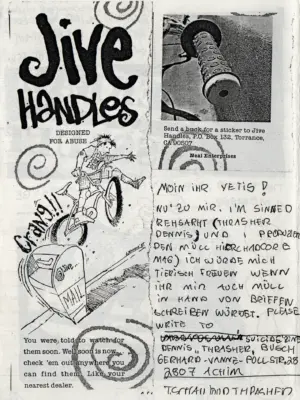 Jive
HANDLES
DESIGNED
FOR ABUSE
Gravy!!
Jive
MAIL
You were told to watch for
them soon. Well soon is now...
check 'em out anywhere you
can find them. Like your
nearest dealer.
Send a buck for a sticker to Jive
Handles, P.O. Box 132, Torrance,
CA 90507
Neal Enterprises
MOIN IHR YETIS!
NU' ZU MIR. I'M SINNED
REHSARHT (THRASHER
DENNIS) UND PRODUZIER
DEN MÜLL HIER
MAG) ICH WÜRDE MICH
TIERISCH FREUEN WENN
IHR MIR AUCH MÜLL
IN HAND VON BRIEFFEN
SCHREIBEN WÜRDET. PLEASE
WRITE TO
DENNIS "THRASHER" BUSCH
GERHARD V. STR. 28
2807 ACHIM